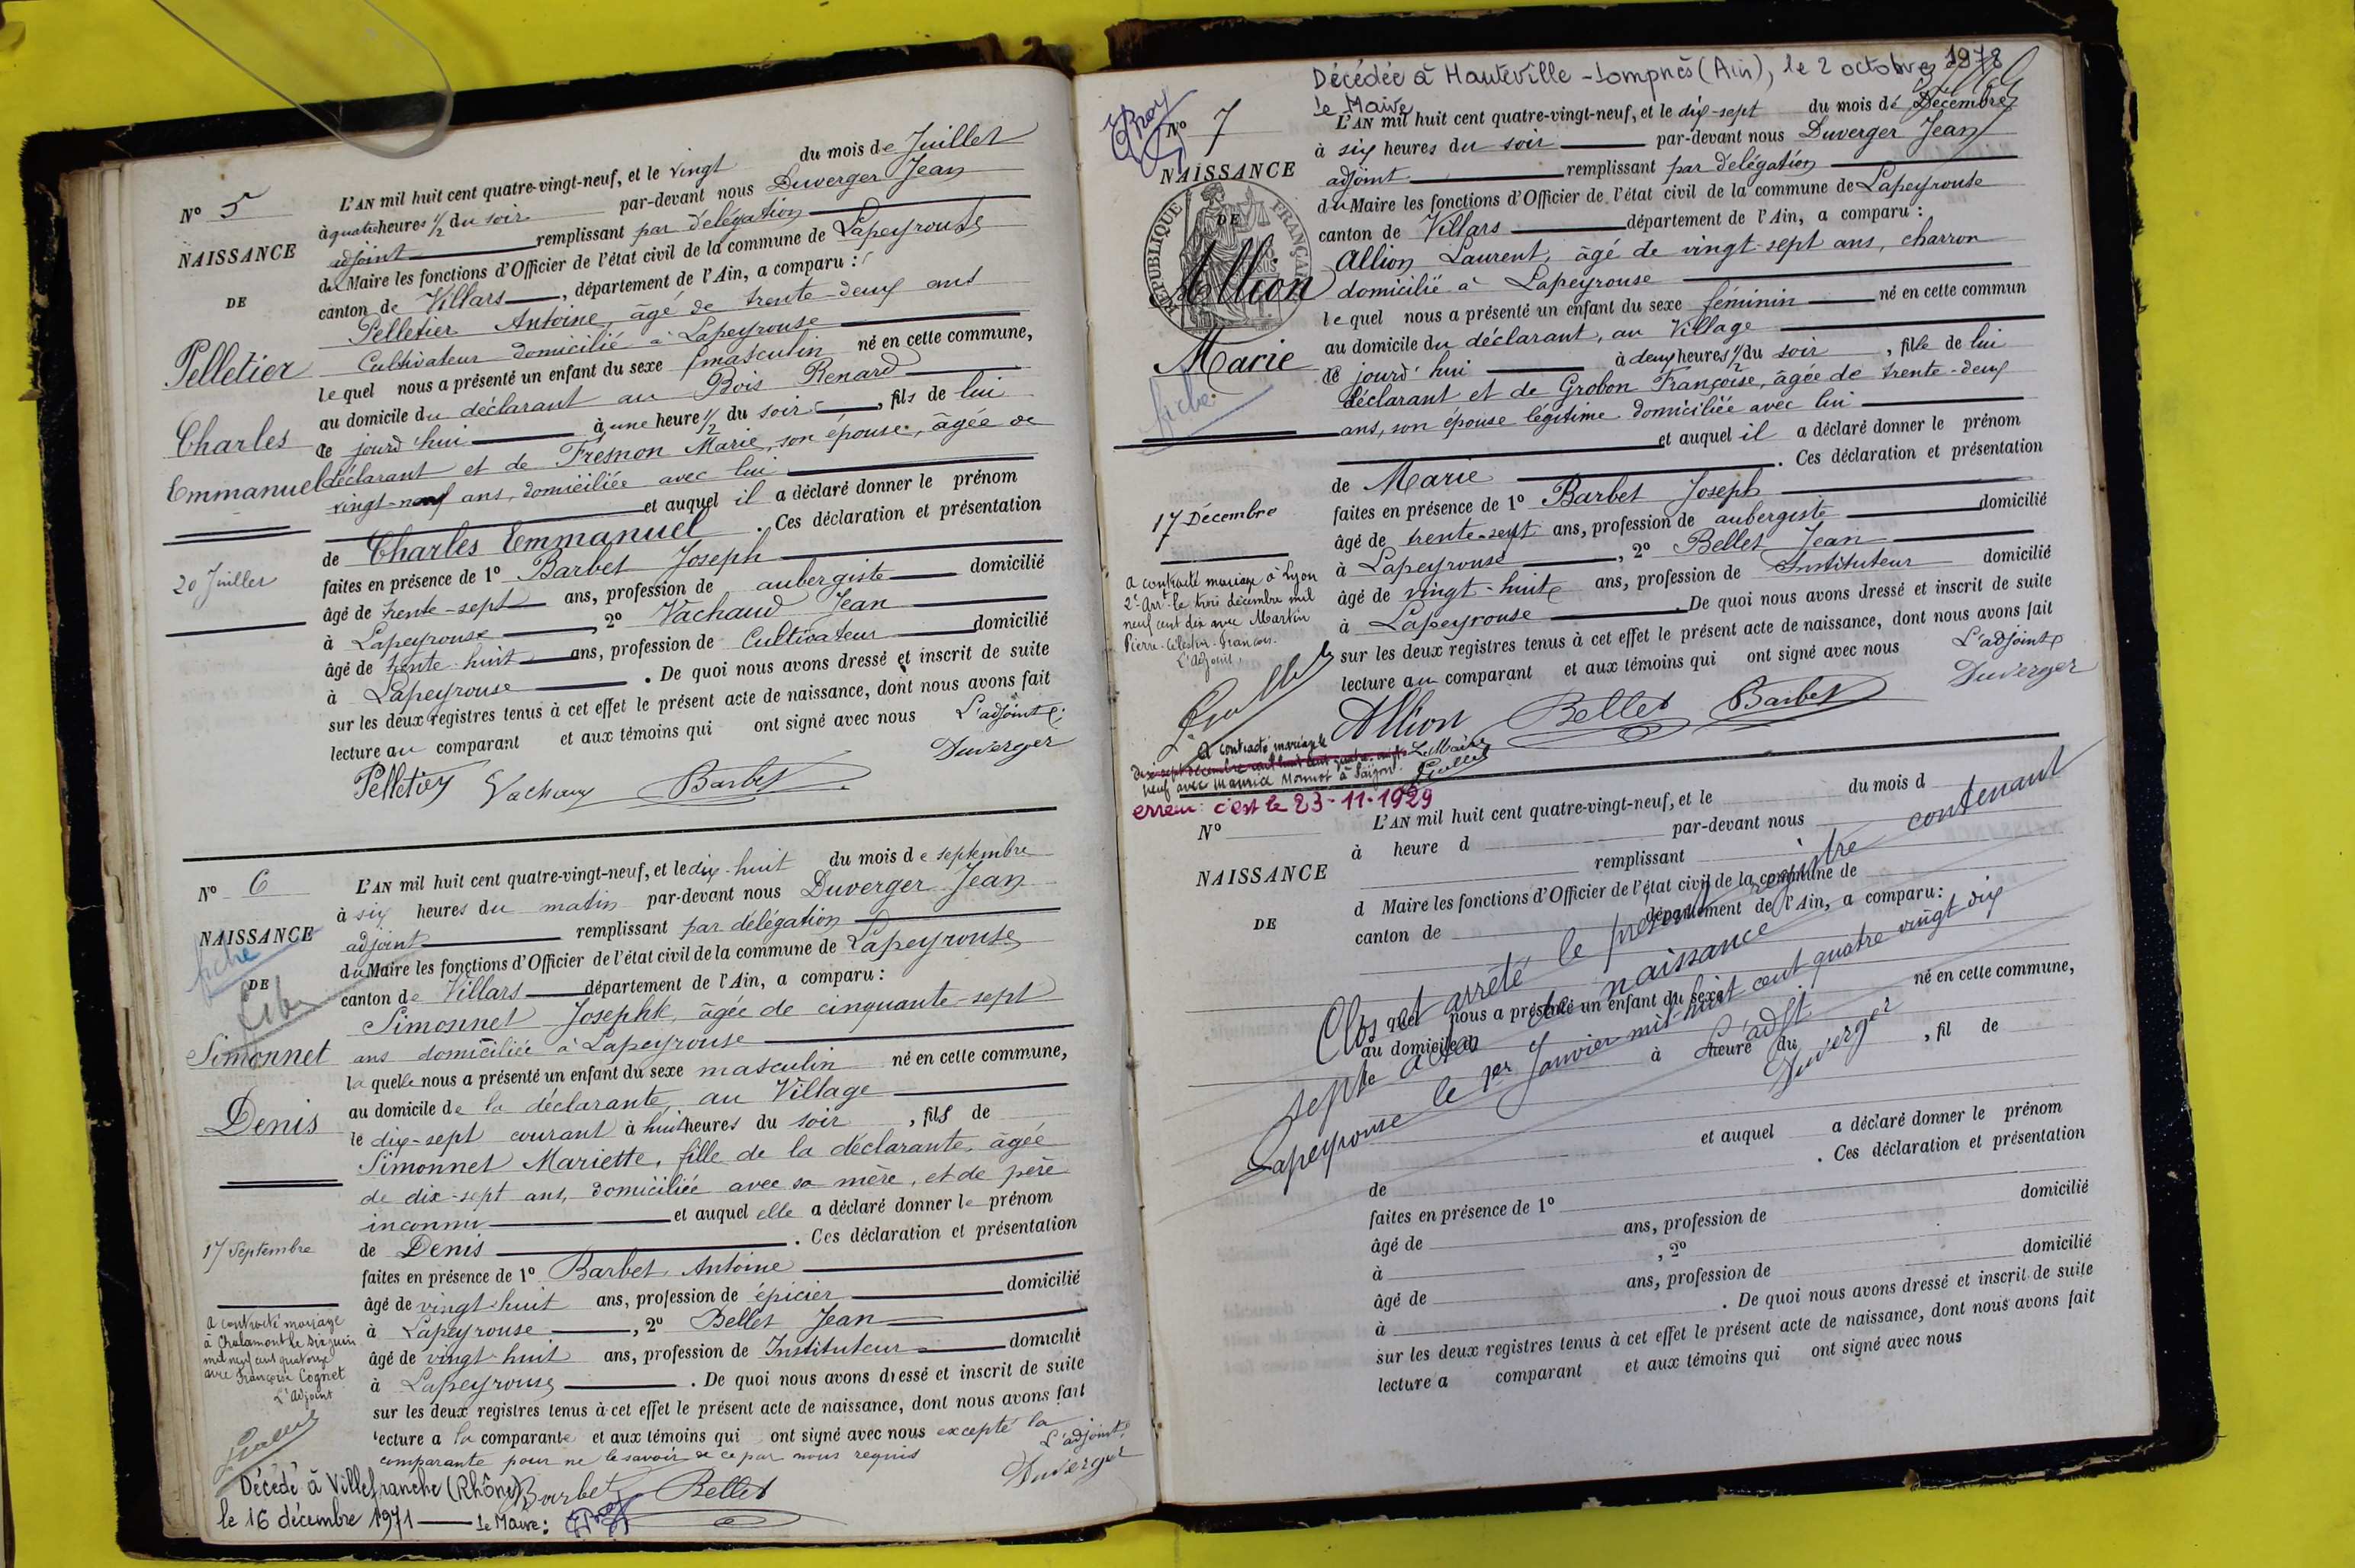 N° 5
NAISSANCE
DE
Pelletier
Charles
Emmanuel
20 Juillet
L'AN mil huit cent quatre-vingt-neuf, et le vingt du mois de Juillet
à quatre heures 1/2 du soir par-devant nous Duverger Jean
adjoint remplissant par délégation
du Maire les fonctions d'Officier de l'état civil de la commune de Lapeyrouse
canton de Villars, département de l'Ain, a comparu :
Pelletier Antoine âgé de trente-deux ans
Cultivateur domicilié à Lapeyrouse
lequel nous a présenté un enfant du sexe masculin né en cette commune,
au domicile du déclarant au Bois Renard
ce jourd'hui à une heure 1/2 du soir, fils de lui
déclarant et de Fresnon Marie, son épouse, âgée de
vingt-neuf ans, domiciliée avec lui
et auquel il a déclaré donner le prénom
de Charles Emmanuel. Ces déclaration et présentation
faites en présence de 1° Barbet Joseph
âgé de trente-sept ans, profession de aubergiste domicilié
à Lapeyrouse, 2° Vachaud Jean
âgé de trente-huit ans, profession de Cultivateur domicilié
à Lapeyrouse. De quoi nous avons dressé et inscrit de suite
sur les deux registres tenus à cet effet le présent acte de naissance, dont nous avons fait
lecture au comparant et aux témoins qui ont signé avec nous L'adjoint
Duverger
Pelletier Vachaud Barbet
N° 6
NAISSANCE
fiche
DE
Simonnet
Denis
17 Septembre
a contracté mariage
à Chalamont le six juin
mil neuf cent quatorze
avec Françoise Cognet
L'Adjoint
Décédé à Villefranche (Rhône)
le 16 décembre 1971 le Maire :
L'AN mil huit cent quatre-vingt-neuf, et le dix-huit du mois de septembre
à six heures du matin par-devant nous Duverger Jean
adjoint remplissant par délégation
du Maire les fonctions d'Officier de l'état civil de la commune de Lapeyrouse
canton de Villars département de l'Ain, a comparu :
Simonnet Josephte, âgée de cinquante-sept
ans domiciliée à Lapeyrouse
laquelle nous a présenté un enfant du sexe masculin né en cette commune,
au domicile de la déclarante, au Village
le dix-sept courant à huit heures du soir, fils de
Simonnet Mariette, fille de la déclarante, âgée
de dix-sept ans, domiciliée avec sa mère, et de père
inconnu et auquel elle a déclaré donner le prénom
de Denis. Ces déclaration et présentation
faites en présence de 1° Barbet Antoine
âgé de vingt-huit ans, profession de épicier domicilié
à Lapeyrouse, 2° Bellet Jean
âgé de vingt-huit ans, profession de Instituteur domicilié
à Lapeyrouse. De quoi nous avons dressé et inscrit de suite
sur les deux registres tenus à cet effet le présent acte de naissance, dont nous avons fait
lecture a la comparante et aux témoins qui ont signé avec nous excepté la
comparante pour ne le savoir de ce par nous requis L'adjoint
Duverger
Barbet Bellet
Décédée à Hauteville-Lompnès (Ain), le 2 octobre 1978
le Maire
N° 7
NAISSANCE
DE
RÉPUBLIQUE FRANÇAISE
Allion
Marie
fiche
17 Décembre
a contracté mariage à Lyon
2e Arrt le trois décembre mil
neuf cent dix avec Martin
Pierre-Célestin-François.
L'Adjoint,
a contracté mariage le
dix-sept décembre mil huit cent quatre-vingt- Le Maire
neuf avec Maurice Monnot à Saïgon.
erreur : c'est le 23-11-1929
L'AN mil huit cent quatre-vingt-neuf, et le dix-sept du mois de Décembre
à six heures du soir par-devant nous Duverger Jean
adjoint remplissant par délégation
du Maire les fonctions d'Officier de l'état civil de la commune de Lapeyrouse
canton de Villars département de l'Ain, a comparu :
Allion Laurent, âgé de vingt-sept ans, charron
domicilié à Lapeyrouse
lequel nous a présenté un enfant du sexe féminin né en cette commun
au domicile du déclarant, au Village
ce jourd'hui à deux heures 1/2 du soir, fille de lui
déclarant et de Grobon Françoise, âgée de trente-deux
ans, son épouse légitime domiciliée avec lui
et auquel il a déclaré donner le prénom
de Marie. Ces déclaration et présentation
faites en présence de 1° Barbet Joseph
âgé de trente-sept ans, profession de aubergiste domicilié
à Lapeyrouse, 2° Bellet Jean
âgé de vingt-huit ans, profession de Instituteur domicilié
à Lapeyrouse. De quoi nous avons dressé et inscrit de suite
sur les deux registres tenus à cet effet le présent acte de naissance, dont nous avons fait
lecture au comparant et aux témoins qui ont signé avec nous L'adjoint
Duverger
Allion Bellet Barbet
N°
NAISSANCE
DE
L'AN mil huit cent quatre-vingt-neuf, et le du mois d
à heure d par-devant nous
remplissant
d Maire les fonctions d'Officier de l'état civil de la commune de
canton de département de l'Ain, a comparu :
quel nous a présenté un enfant du sexe né en cette commune,
au domicile d
à heure du , fil de
et auquel a déclaré donner le prénom
de . Ces déclaration et présentation
faites en présence de 1°
âgé de ans, profession de domicilié
à , 2°
âgé de ans, profession de domicilié
à . De quoi nous avons dressé et inscrit de suite
sur les deux registres tenus à cet effet le présent acte de naissance, dont nous avons fait
lecture a comparant et aux témoins qui ont signé avec nous
Clos et arrêté le présent registre contenant
sept actes de naissance
Lapeyrouse le 1er Janvier mil huit cent quatre vingt dix
L'adjt
Duverger